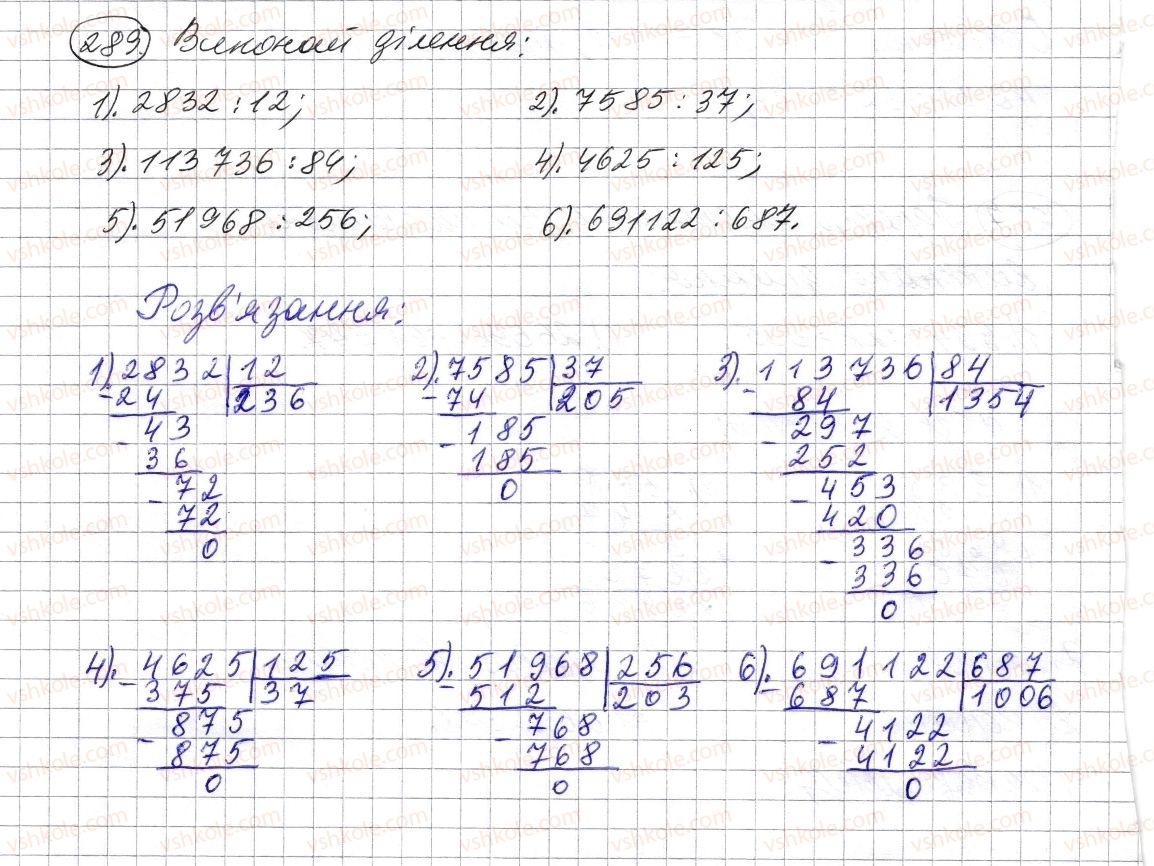 289. Виконай ділення:
1). 2832 : 12; 2). 7585 : 37;
3). 113 736 : 84; 4). 4625 : 125;
5). 51968 : 256; 6). 691122 : 687.
Розв'язання:
1). 2832 | 12 2). 7585 | 37 3). 113 736 | 84
- 24 236 - 74 205 - 84 1354
- 43 - 185 - 297
36 185 252
- 72 0 - 453
72 420
0 - 336
336
0
4). 4625 | 125 5). 51968 | 256 6). 691122 | 687
- 375 37 - 512 203 - 687 1006
- 875 - 768 - 4122
875 768 4122
0 0 0